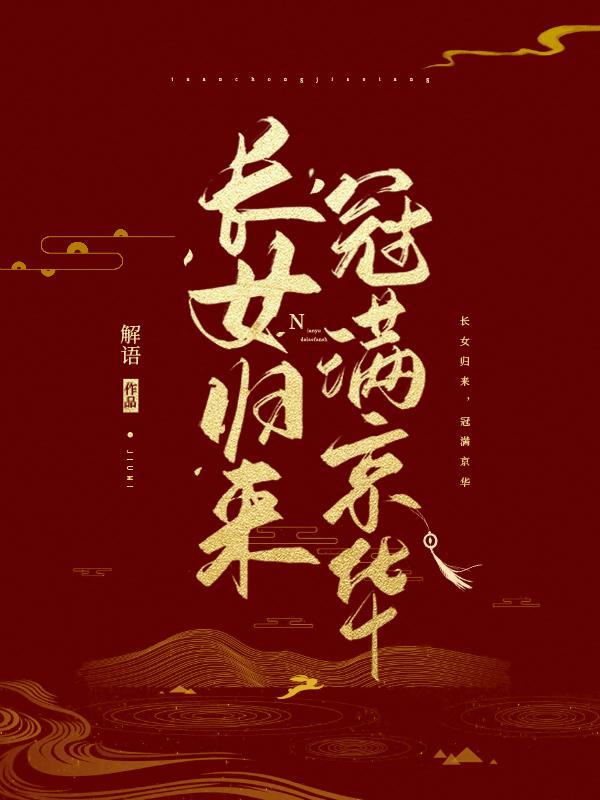 tuanchongjiaoiang
长女归来
冠满京华
N
解语
作品
JIUMI
长女归来，冠满京华